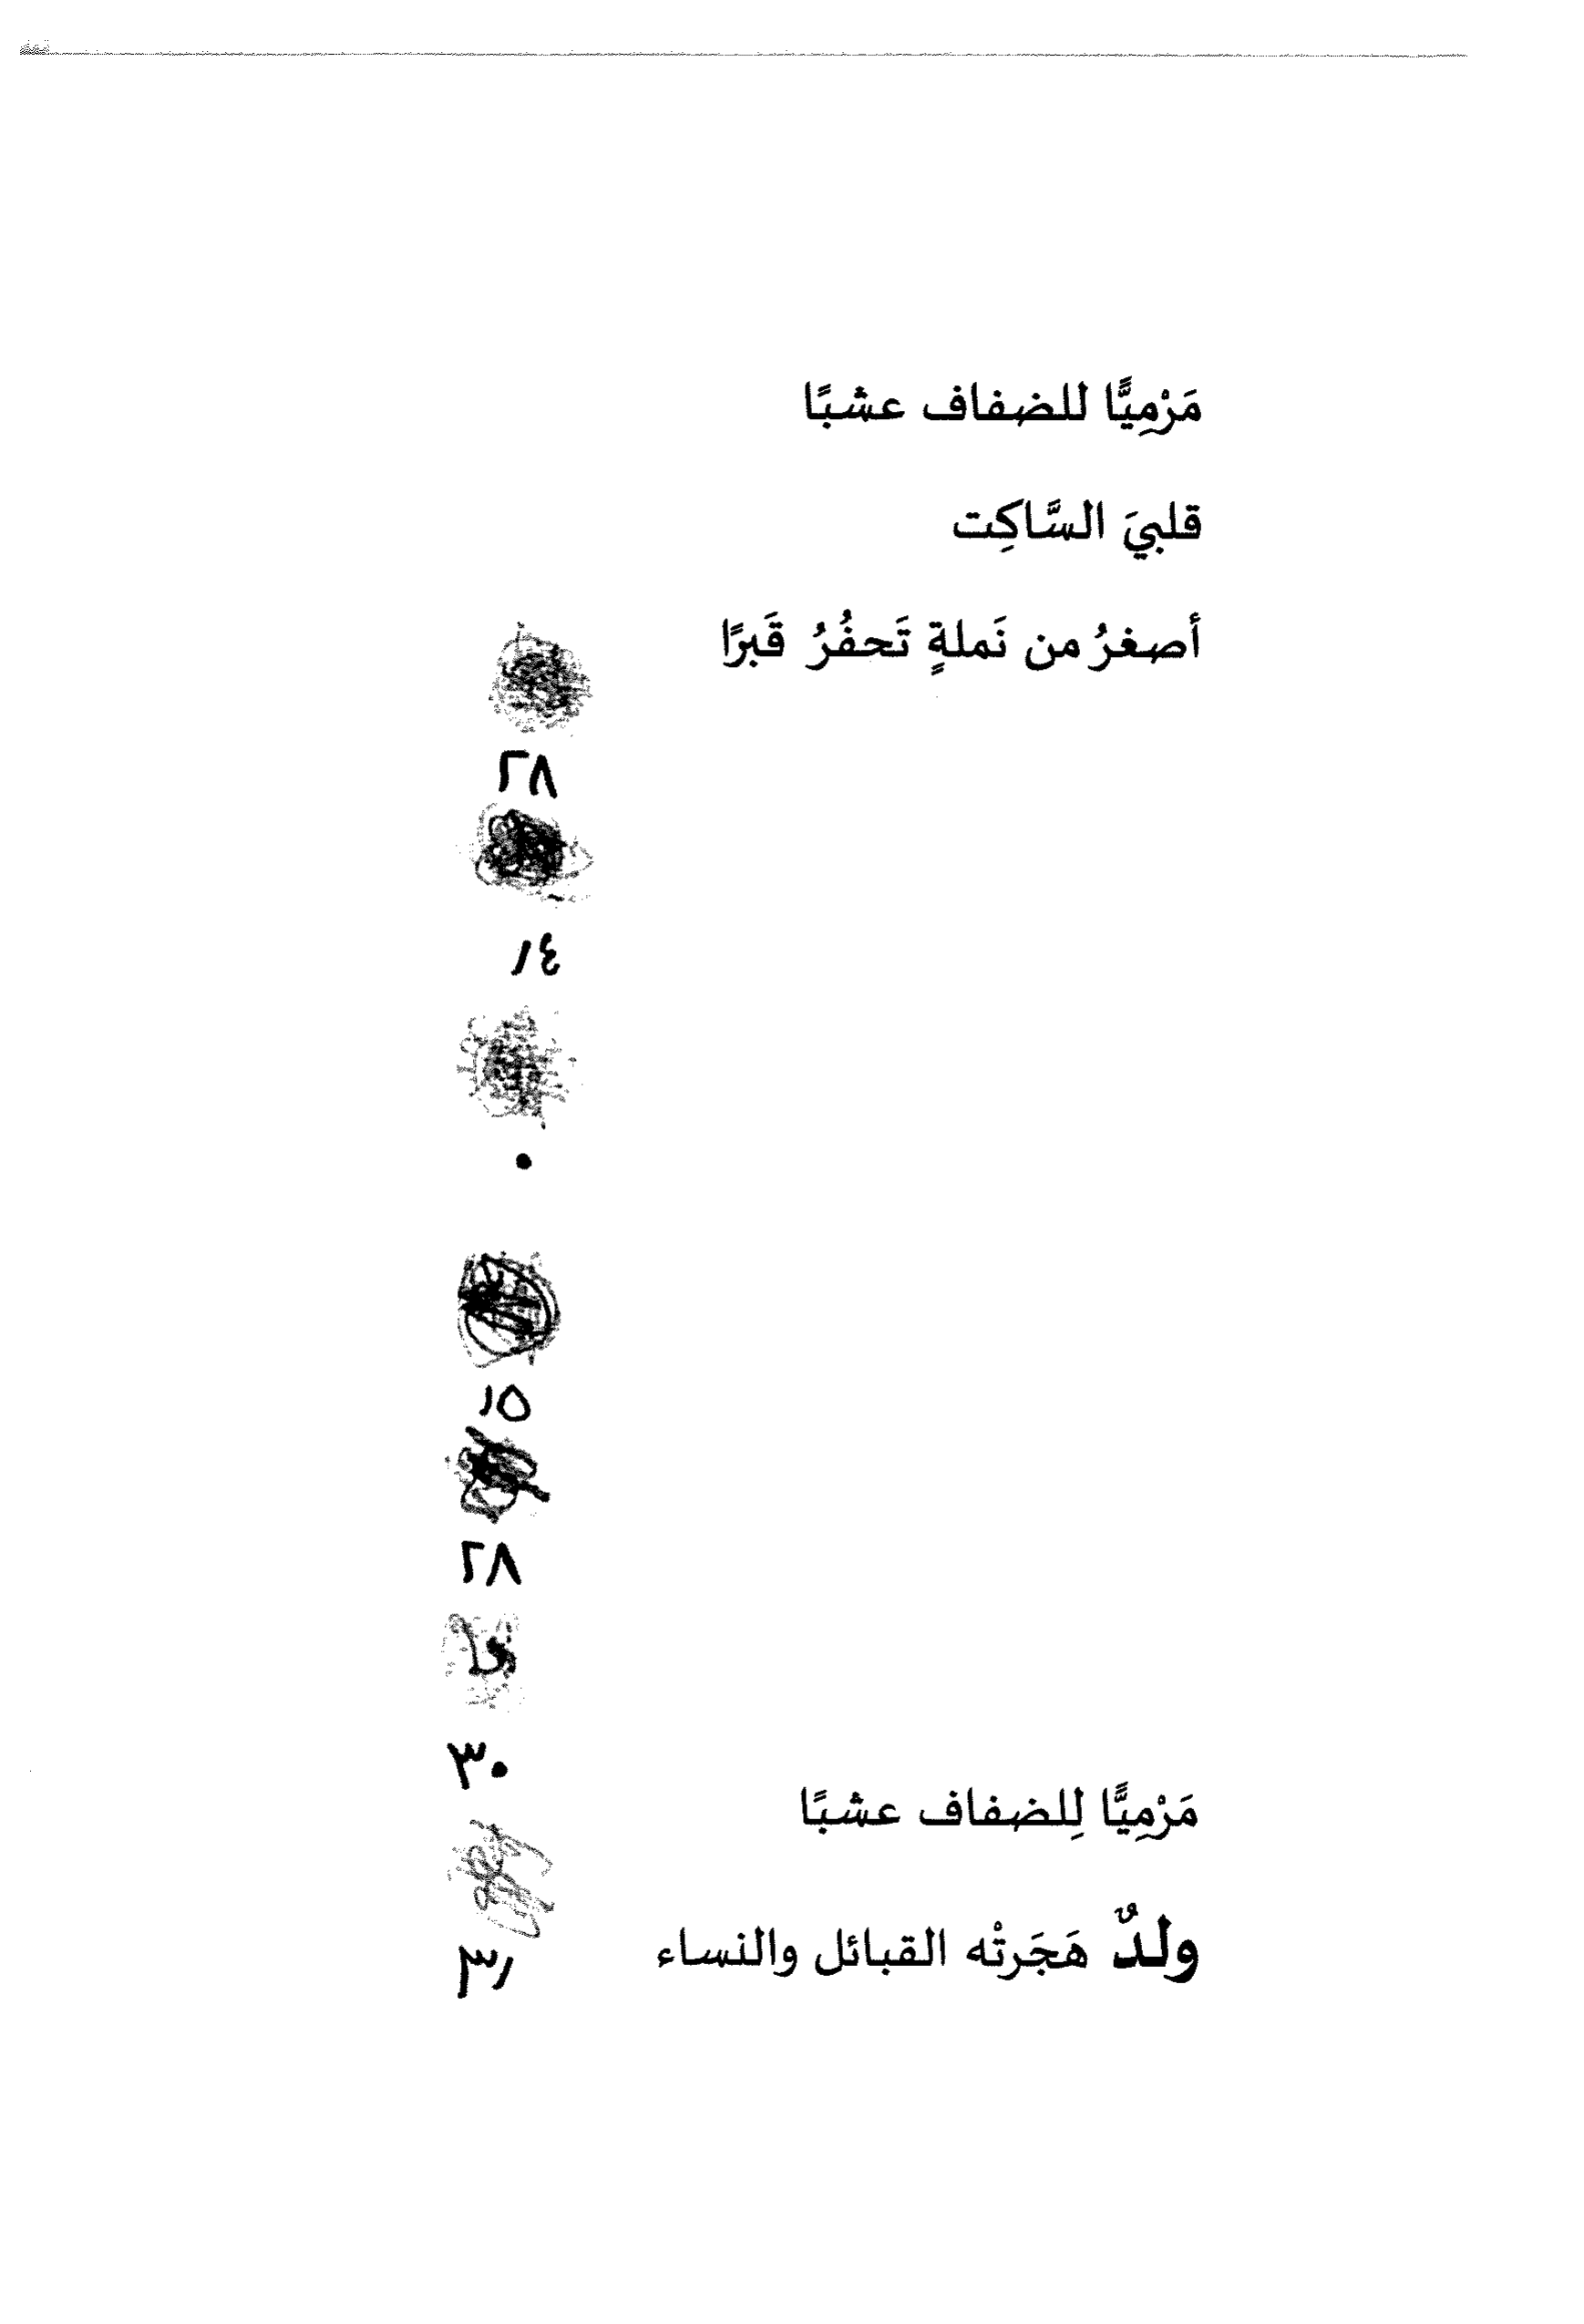 مَرْمِيًّا للضفاف عشبًا
قلبيَ السَّاكِت
أصغرُ من نَملةٍ تَحفُرُ قَبرًا
٢٨
١٤
٠
١٥
٢٨
٣٠
مَرْمِيًّا لِلضفاف عشبًا
ولدٌ هَجَرتْه القبائل والنساء
٣١